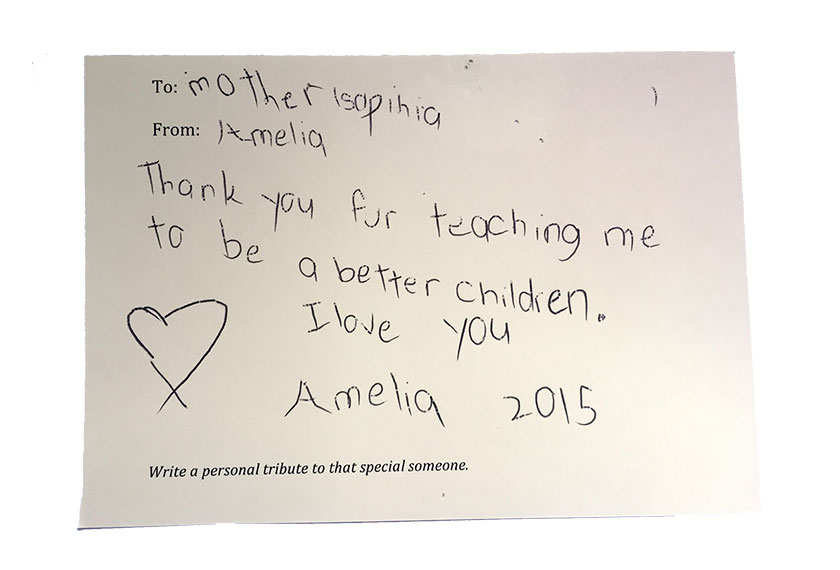 To: mother Isapihia
From: Amelia
Thank you fur teaching me
to be a better children.
I love you
Amelia 2015
Write a personal tribute to that special someone.